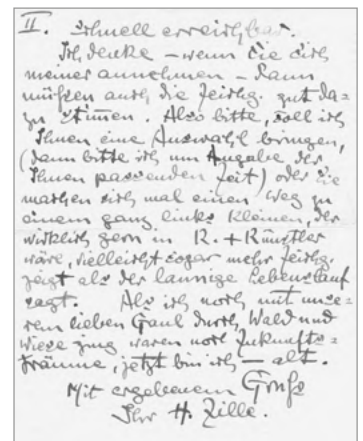 II. Schnell erreichbar.
Ich denke – wenn Sie sich
meiner annehmen – dann
müssen auch die Zeichg. gut da=
zu stimmen. Also bitte, soll ich
Ihnen eine Auswahl bringen,
(dann bitte ich um Angabe der
Ihnen passenden Zeit) oder Sie
machen sich mal einen Weg zu
einem ganz links Kleinen, der
wirklich gern in K. + Künstler
wäre, vielleicht sogar mehr Zeichg.
zeigt als der launige Lebenslauf
sagt. Als ich noch mit unse=
rem lieben Gaul durch Wald und
Wiese zing waren noch Zukunfts=
träume, jetzt bin ich – alt.
Mit ergebenem Gruß
Ihr H. Zille.